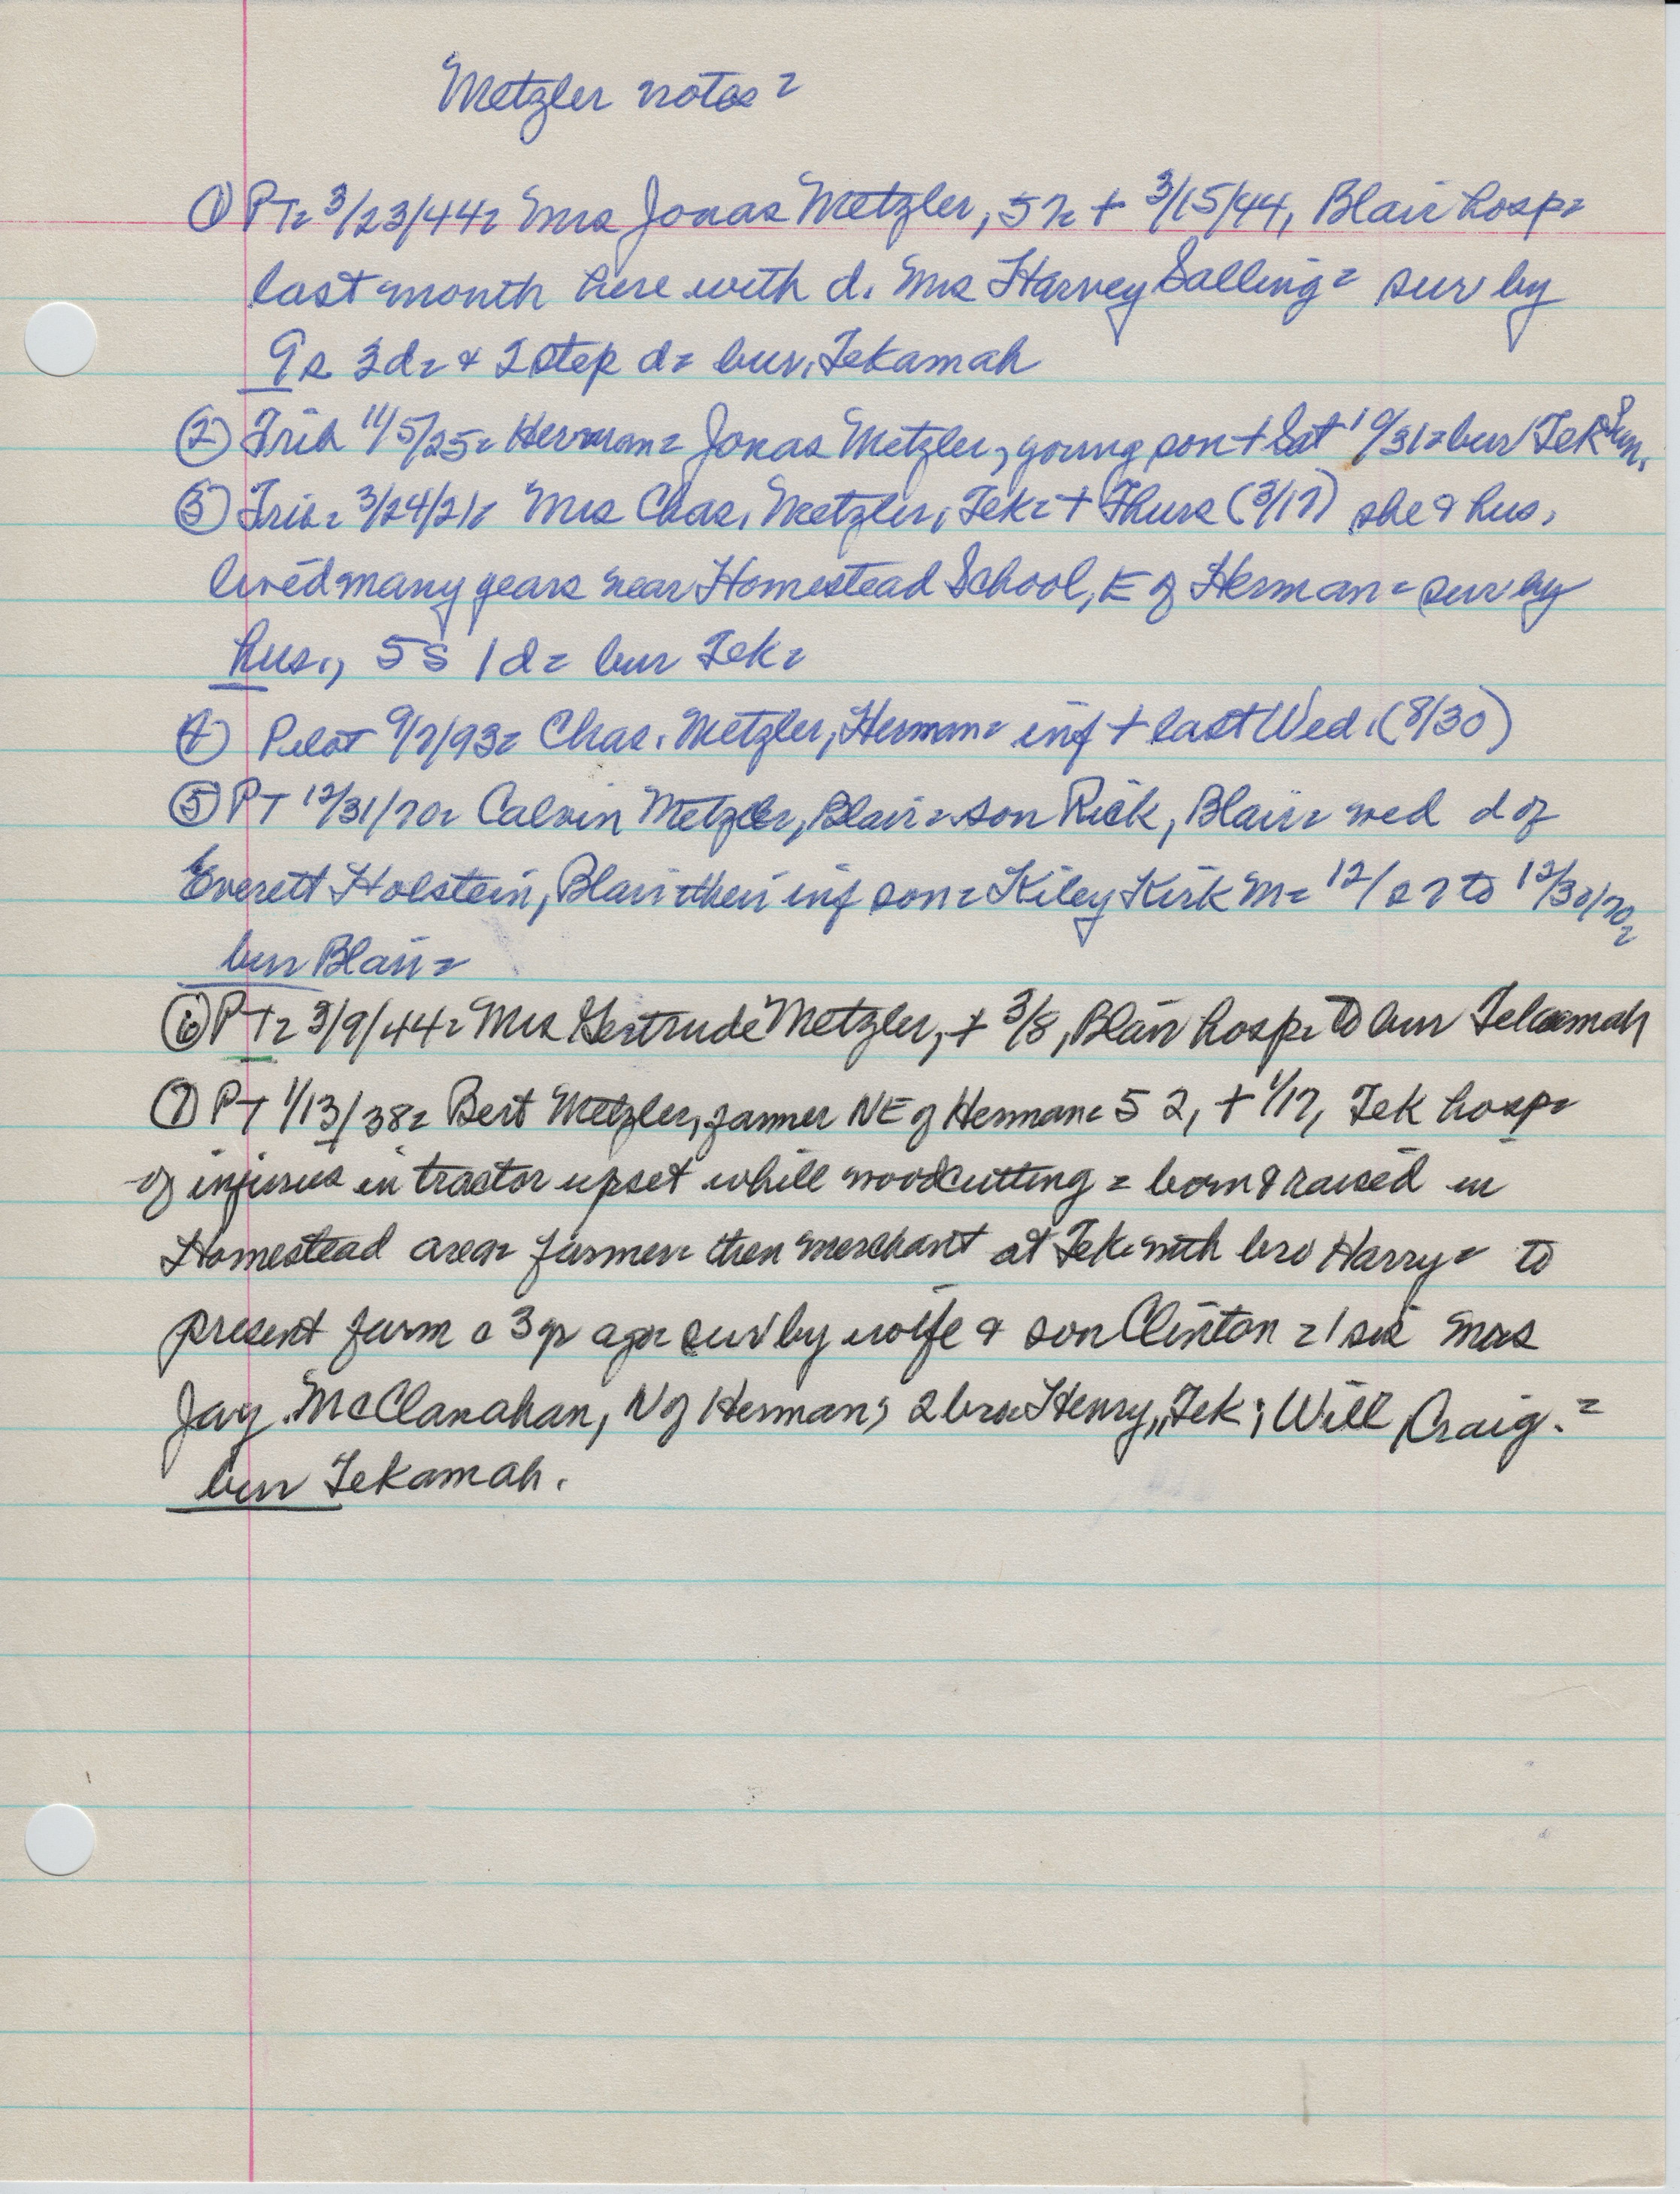 Metzler notes =
① PT = 3/23/44 = Mrs Jonas Metzler, 57 = + 3/15/44, Blair hosp =
last month here with d. Mrs Harvey Salling = sur by
9 s 3 d = & 2 step d = bur. Tekamah
② Trib 11/5/25 = Herman = Jonas Metzler, young son + Sat 10/31 = bur Tek Sun.
③ Trib = 3/24/21 = Mrs Chas. Metzler, Tek = + Thurs (3/17) she & hus.
lived many years near Homestead School, E of Herman = sur by
hus., 5 s 1 d = bur Tek =
④ Pilot 9/7/93 = Chas. Metzler, Herman = inf + last Wed. (8/30)
⑤ PT 12/31/70 = Calvin Metzler, Blair = son Rick, Blair = wed d of
Everett Holstein, Blair = their inf son = Kiley Kirk M = 12/27 to 12/30/70 =
bur Blair =
⑥ PT = 3/9/44 = Mrs Gertrude Metzler, + 3/8, Blair hosp = to bur Tekamah
⑦ PT 1/13/38 = Bert Metzler, farmer NE of Herman = 52, + 1/17, Tek hosp =
of injuries in tractor upset while woodcutting = born & raised in
Homestead area = farmer = then merchant at Tek = with bro Harry = to
present farm a 3 yr ago = sur by wife & son Clinton = 1 sis Mrs
Jay McClanahan, N of Herman; 2 bro = Henry, Tek; Will, Craig. =
bur Tekamah.